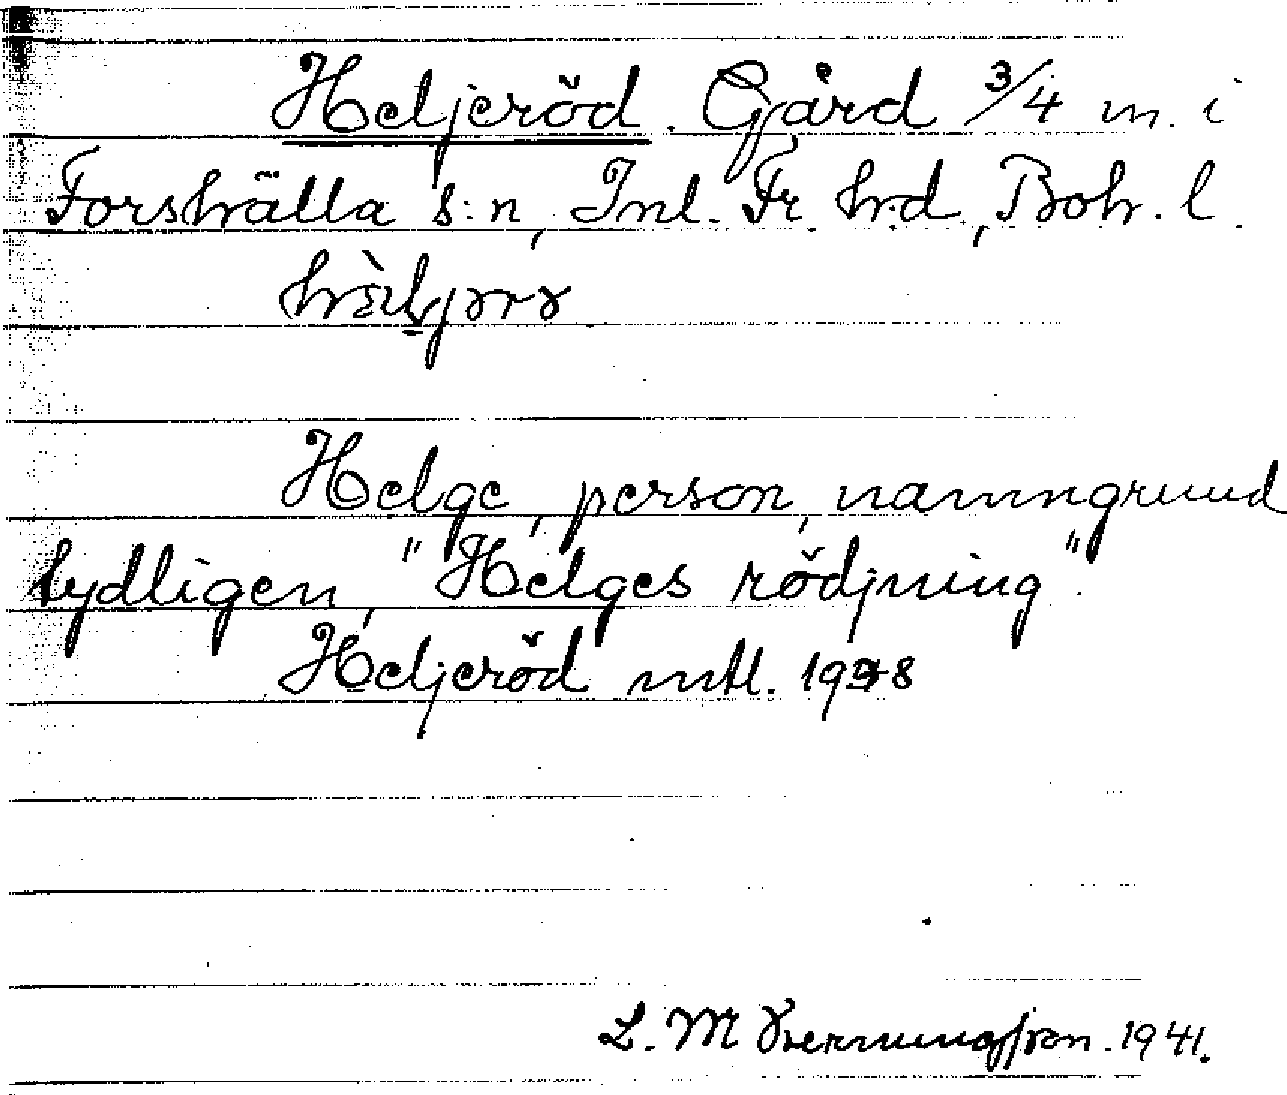 Heljeröd. Gård 3/4 m. i
Forshälla s:n, Inl. Fr. hrd, Boh. l.
Helge, person, namngrund
tydligen, "Helges rödjning".
Heljeröd mtl. 1938
L. M. 1941.